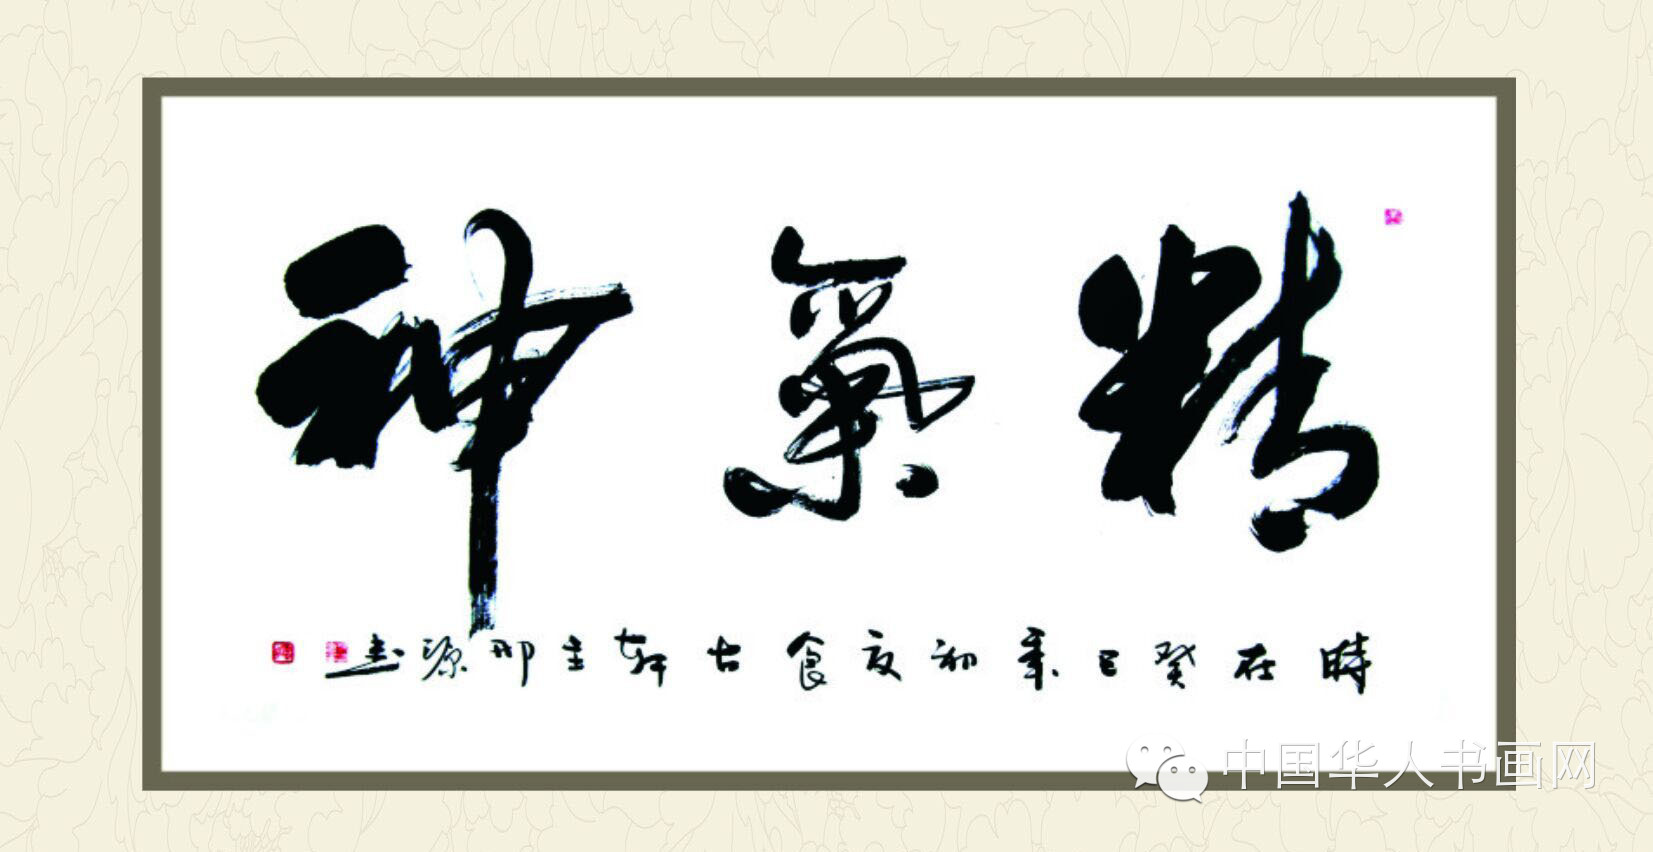 精氣神
時在癸巳年初夏食古軒主邢源書
中国华人书画网